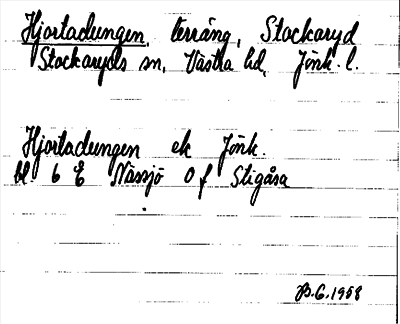 Hjortadungen, terräng, Stockaryd
Stockaryds sn, Västra hd, Jönk. l.
Hjortadungen ek Jönk.
bl. 6 E Nässjö 0 f Stigåsa
B.G. 1958